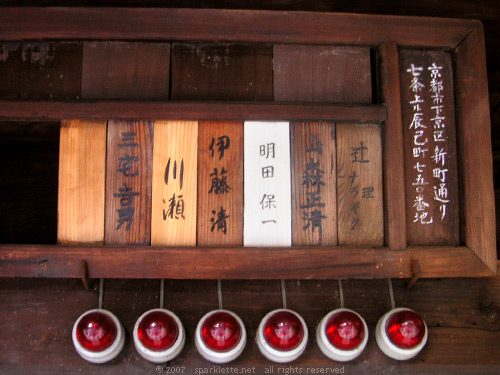 京都市下京区新町通り
七条上ル辰己町七五〇番地
辻
山森正清
明田保一
伊藤清
川瀬
三宅吉男
© 2007 sparklette.net all rights reserved